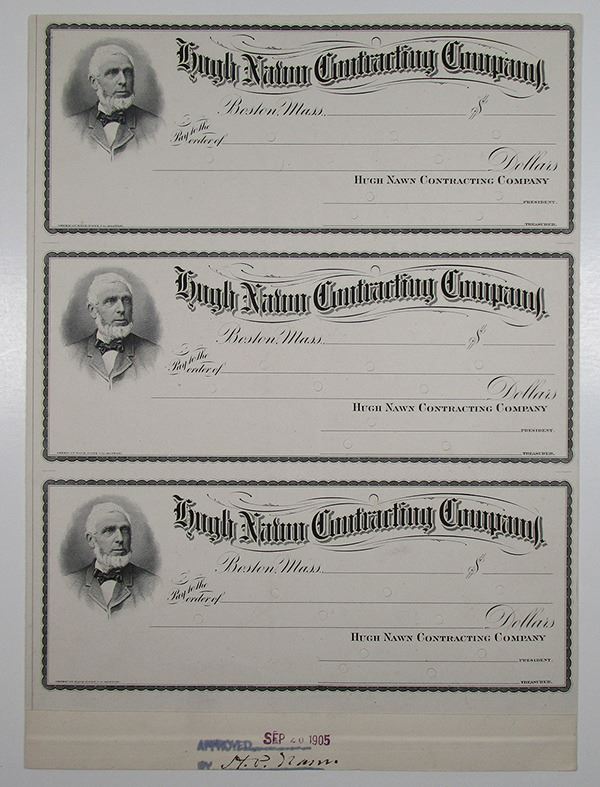 Hugh Nawn Contracting Company.
Boston, Mass. $
Pay to the order of
Dollars
HUGH NAWN CONTRACTING COMPANY
PRESIDENT.
AMERICAN BANK NOTE CO. BOSTON. TREASURER.
Hugh Nawn Contracting Company.
Boston, Mass. $
Pay to the order of
Dollars
HUGH NAWN CONTRACTING COMPANY
PRESIDENT.
AMERICAN BANK NOTE CO. BOSTON. TREASURER.
Hugh Nawn Contracting Company.
Boston, Mass. $
Pay to the order of
Dollars
HUGH NAWN CONTRACTING COMPANY
PRESIDENT.
AMERICAN BANK NOTE CO. BOSTON. TREASURER.
APPROVED SEP 20 1905
BY H. P. Nawn.